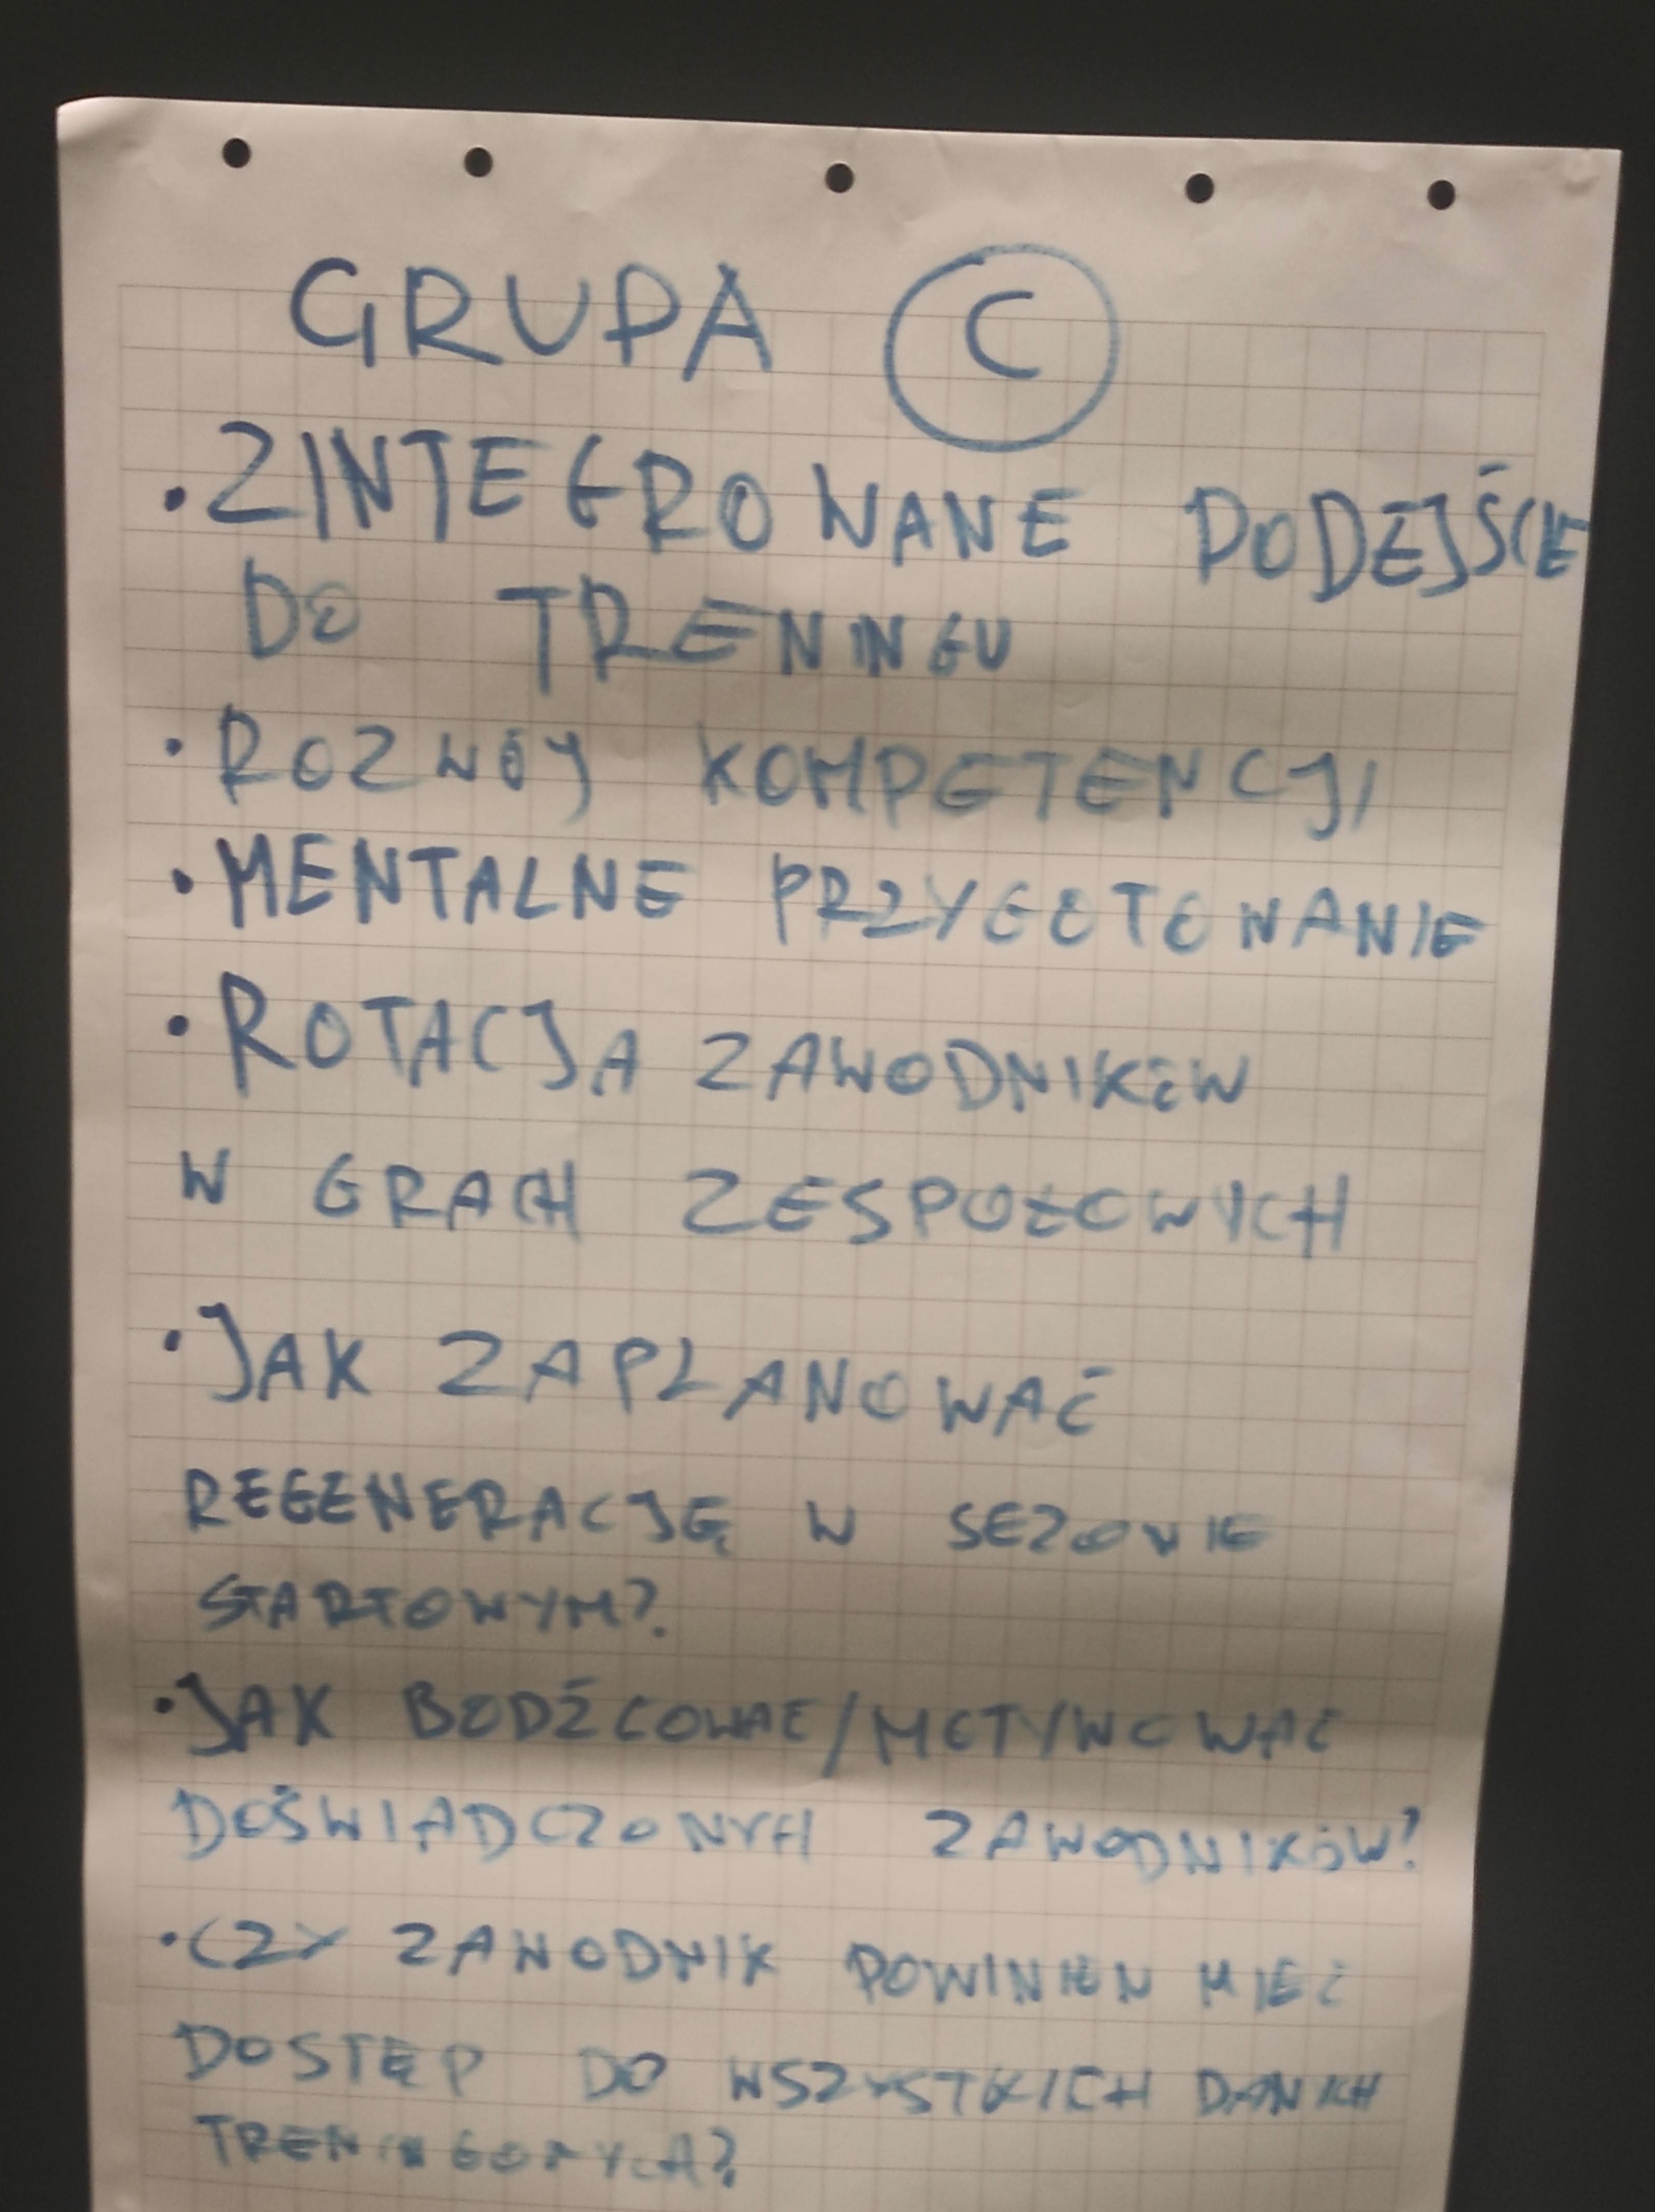 GRUPA C
• ZINTEGROWANE PODEJŚCIE
DO TRENINGU
• ROZWÓJ KOMPETENCJI
• MENTALNE PRZYGOTOWANIE
• ROTACJA ZAWODNIKÓW
W GRACH ZESPOŁOWYCH
• JAK ZAPLANOWAĆ
REGENERACJĘ W SEZONIE
STARTOWYM?
• JAK BODŹCOWAĆ/MOTYWOWAĆ
DOŚWIADCZONYCH ZAWODNIKÓW?
• CZY ZAWODNIK POWINIEN MIEĆ
DOSTĘP DO WSZYSTKICH DANYCH
TRENINGOWYCH?